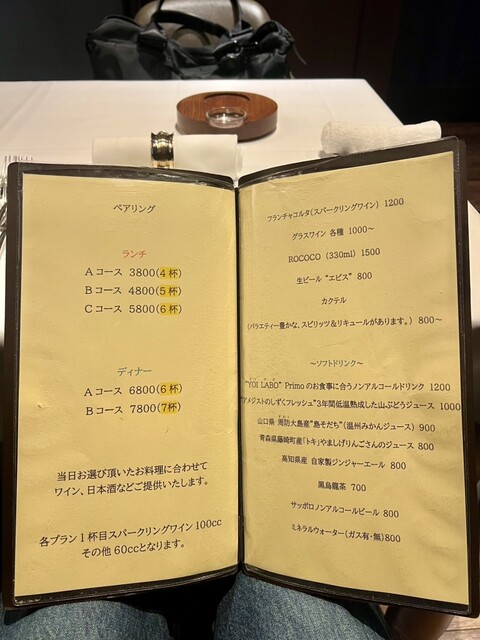 ペアリング
ランチ
Aコース 3800(4杯)
Bコース 4800(5杯)
Cコース 5800(6杯)
ディナー
Aコース 6800(6杯)
Bコース 7800(7杯)
当日お選び頂いたお料理に合わせて
ワイン、日本酒などご提供いたします。
各プラン1杯目スパークリングワイン100cc
その他 60ccとなります。
フランチャコルタ(スパークリングワイン) 1200
グラスワイン 各種 1000〜
ROCOCO (330ml) 1500
生ビール “エビス” 800
カクテル
(バラエティー豊かな、スピリッツ&リキュールがあります。) 800〜
〜ソフトドリンク〜
“YOI LABO” Primoのお食事に合うノンアルコールドリンク 1200
“アメジストのしずくフレッシュ”3年間低温熟成した山ぶどうジュース 1000
山口県 周防大島産“島そだち”(温州みかんジュース) 900
青森県藤崎町産「トキ」やましげりんごさんのジュース 800
高知県産 自家製ジンジャーエール 800
黒烏龍茶 700
サッポロノンアルコールビール 800
ミネラルウォーター(ガス有・無)800